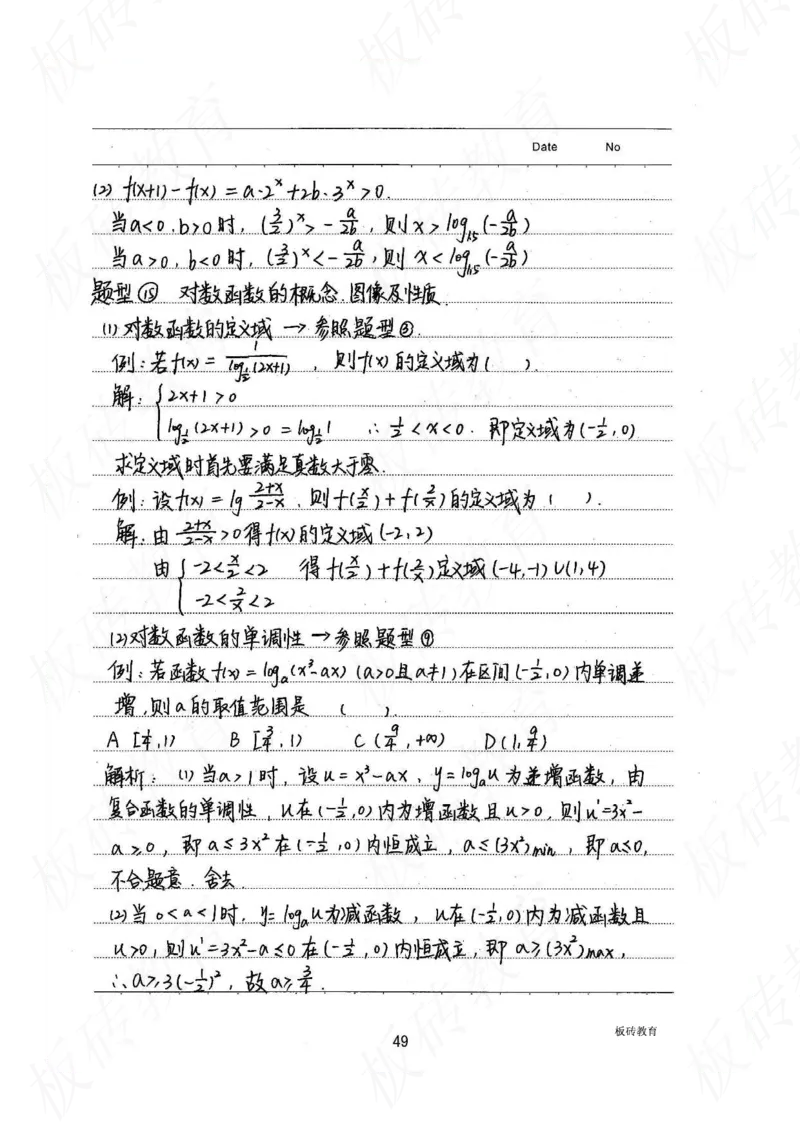 Date No
(2) f(x+1)-f(x)=a·2^x+2b·3^x>0.
当a<0,b>0时,(3/2)^x>-a/2b,则x>log_1.5(-a/2b)
当a>0,b<0时,(3/2)^x<-a/2b,则x<log_1.5(-a/2b)
题型⑮ 对数函数的概念、图像及性质
(1)对数函数的定义域→参照题型
例:若f(x)=1/√(log_1/2(2x+1)),则f(x)的定义域为( ).
解:{2x+1>0
log_1/2(2x+1)>0=log_1/2 1 ∴-1/2<x<0.即定义域为(-1/2,0)
求定义域时首先要满足真数大于零.
例:设f(x)=lg (2+x)/(2-x),则f(x/2)+f(2/x)的定义域为( ).
解:由(2+x)/(2-x)>0得f(x)的定义域(-2,2)
由{-2<x/2<2 得f(x/2)+f(2/x)定义域(-4,-1)∪(1,4)
-2<2/x<2
(2)对数函数的单调性→参照题型⑨
例:若函数f(x)=log_a(x³-ax)(a>0且a≠1)在区间(-1/2,0)内单调递
增,则a的取值范围是( ).
A [1/4,1) B [3/4,1) C (9/4,+∞) D(1,9/4)
解析:(1)当a>1时,设u=x³-ax,y=log_a u为递增函数,由
复合函数的单调性,u在(-1/2,0)内为增函数且u>0,则u'=3x²-
a≥0,即a≤3x²在(-1/2,0)内恒成立,a≤(3x²)min,即a≤0,
不合题意.舍去.
(2)当0<a<1时,y=log_a u为减函数,u在(-1/2,0)内为减函数且
u>0,则u'=3x²-a≤0在(-1/2,0)内恒成立,即a≥(3x²)max,
∴a≥3(-1/2)²,故a≥3/4.
板砖教育
49